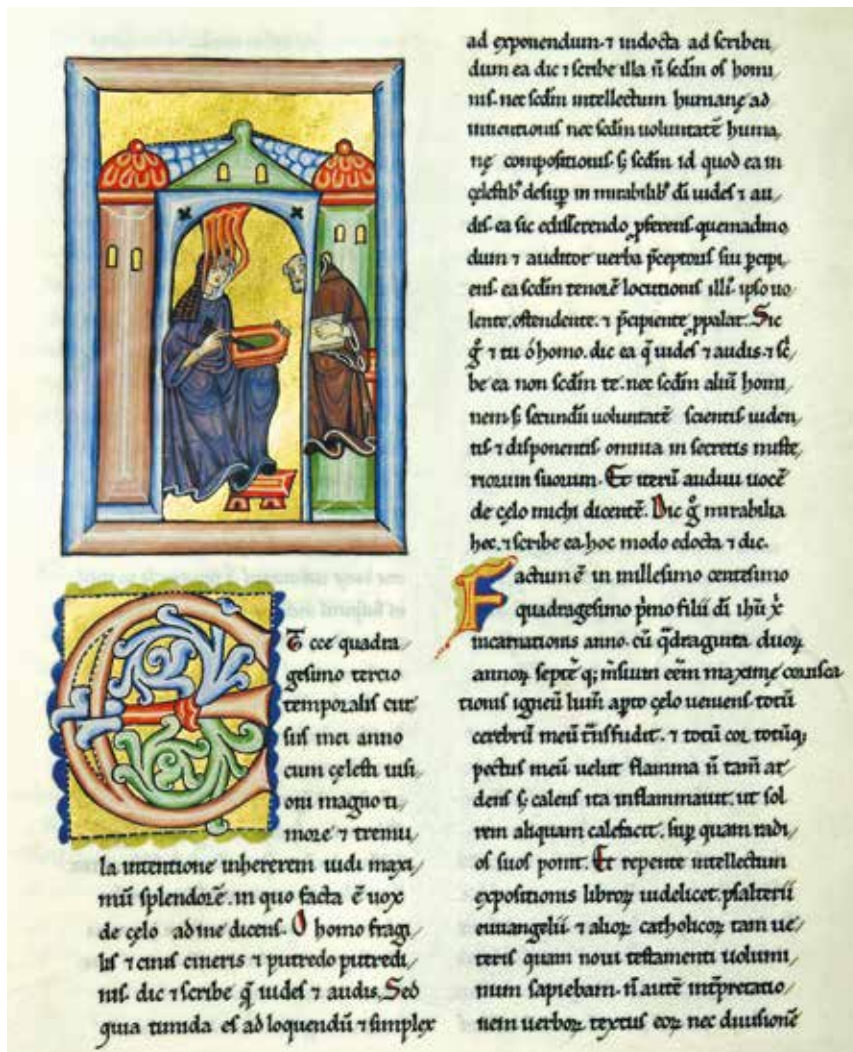 Et cce quadra/
gesimo tercio
temporalis cur
sus mei anno
cum cęlesti uisi/
oni magno ti/
more ⁊ tremu/
la intentione inhererem uidi maxi/
mū splendorē. in quo facta ē uox
de cęlo ad me dicens. O homo fragi/
lis ⁊ cinis cineris ⁊ putredo putredi/
nis. dic ⁊ scribe q̄ uides ⁊ audis. Sed
quia timida es ad loquendū ⁊ simplex
ad exponendum. ⁊ indocta ad scriben/
dum ea dic ⁊ scribe illa n̄ scdm os homi/
nis. nec scdm intellectum humanę ad
inuentionis nec scdm uoluntatē huma/
nę compositionis. s; scdm id quod ea in
cęlestib' desup in mirabilib' dī uides ⁊ au/
dis. ea sic edisserendo ꝓferens. quemadmo
dum ⁊ auditor uerba p̄ceptoris sui ꝑcipi/
ens. ea scdm tenorē locutionis illi'. ipso uo/
lente. ostendente. ⁊ p̄cipiente ꝓpalat. Sic
g̊ ⁊ tu ó homo. dic ea q̄ uides ⁊ audis. ⁊ sc̄/
be ea non scdm te. nec scdm aliū homi/
nem s; secundū uoluntatē scientis uiden/
tis ⁊ disponentis omnia in secretis miste/
riorum suorum. Et iterū audiui uocē
de cęlo michi dicentē. Dic g̊ mirabilia
hec. ⁊ scribe ea. hoc modo edocta ⁊ dic.
Factum ē in millesimo centesimo
quadragesimo p̍mo filii dī ihū x̄
incarnationis anno. cū q̄draginta duoꝝ
annoꝝ septē q; m̄sium eēm maximę corusca
tionis igneū lum̄. apto cęlo ueniens. totū
cerebrū meū tn̄sfudit. ⁊ totū cor totūq;
pectus meū uelut flamma n̄ tam̄ ar/
dens s; calens ita inflammauit. ut sol
rem aliquam calefacit. sup quam radi/
os suos ponit. Et repente intellectum
expositionis libroꝝ uidelicet. psalterii
euuangelii. ⁊ alioꝝ catholicoꝝ tam ue/
teris quam noui testamenti uolumi/
num sapiebam. n̄ autē int̄pretatio/
nem uerboꝝ textus eoꝝ nec diuisionē